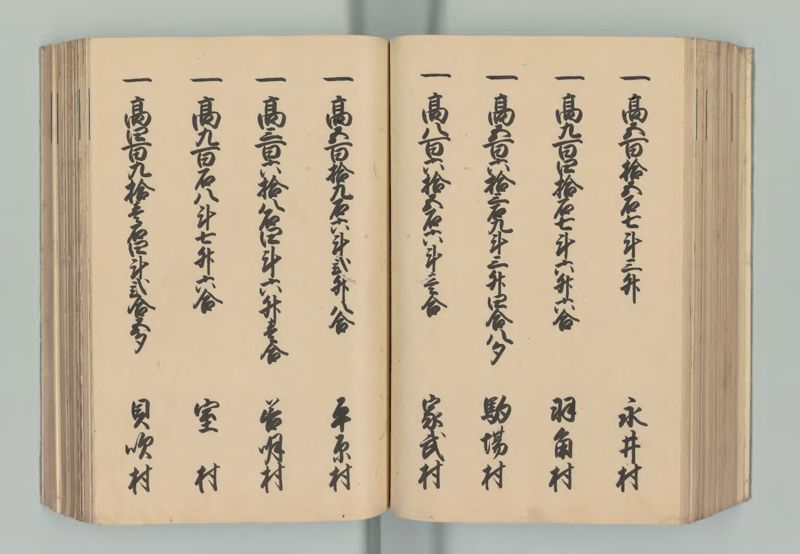 一 高五百拾五石七斗三升 永井村
一 高九百四拾石七斗六升六合 羽角村
一 高五百六拾三石九斗三升四合八夕 駒場村
一 高八百六拾五石六斗三合 家武村
一 高五百拾九石六斗弐升八合 平原村
一 高三百六拾八石四斗六升壱合 善明村
一 高九百石八斗七升六合 室村
一 高四百九拾壱石四斗弐合五夕 貝吹村